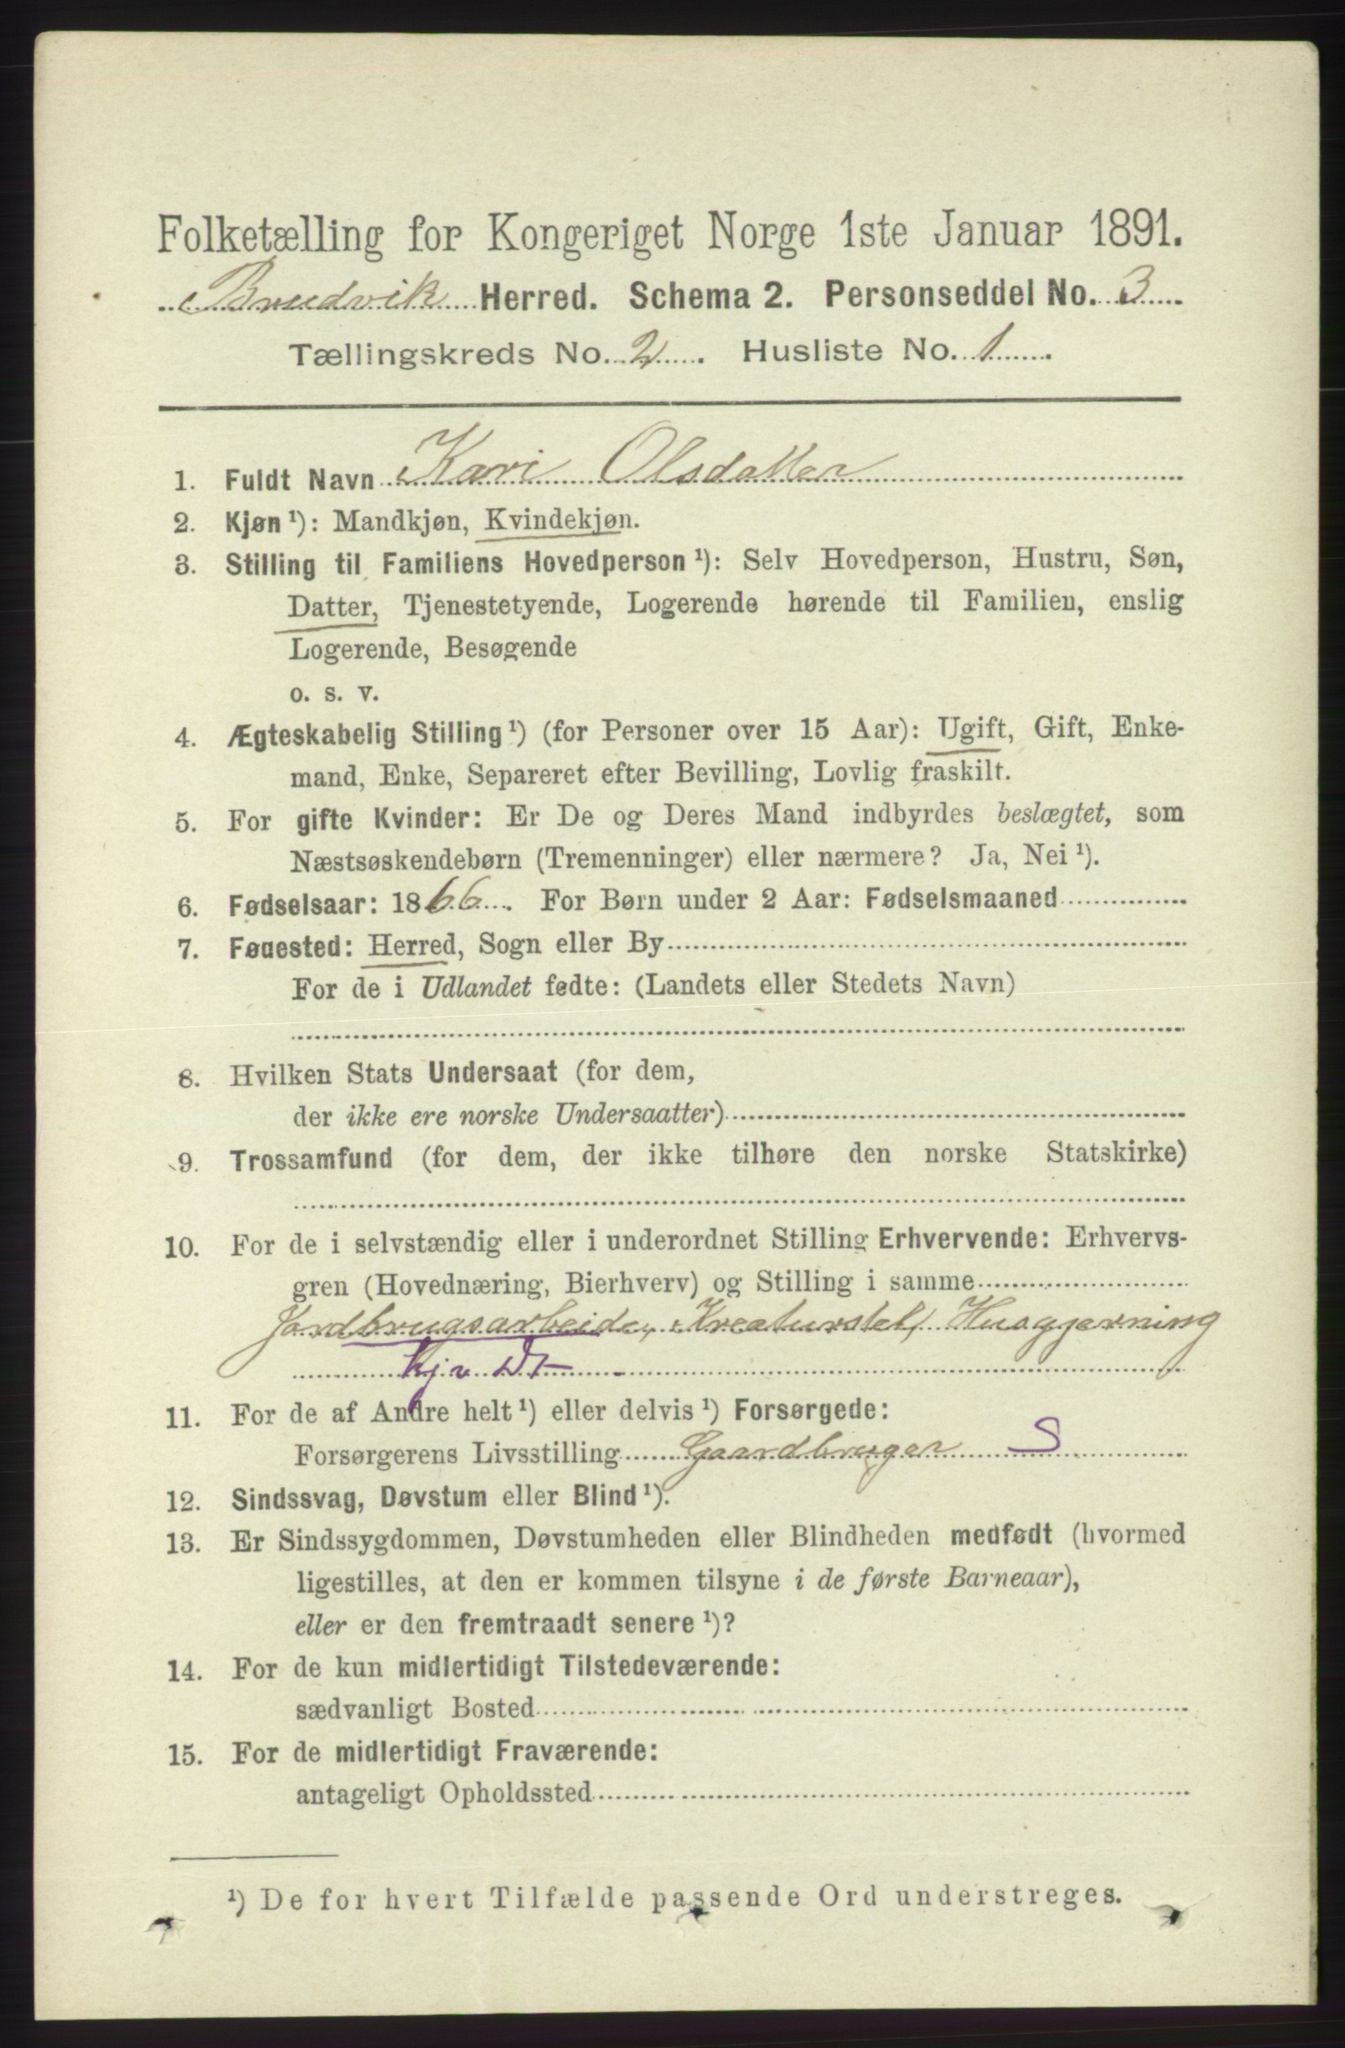 Folketælling for Kongeriget Norge 1ste Januar 1891.
Brudvik Herred. Schema 2. Personseddel No. 3
Tællingskreds No. 2. Husliste No. 1.
1. Fuldt Navn Kari Olsdatter
2. Kjøn ¹): Mandkjøn, Kvindekjøn.
3. Stilling til Familiens Hovedperson ¹): Selv Hovedperson, Hustru, Søn,
Datter, Tjenestetyende, Logerende hørende til Familien, enslig
Logerende, Besøgende
o. s. v.
4. Ægteskabelig Stilling ¹) (for Personer over 15 Aar): Ugift, Gift, Enke-
mand, Enke, Separeret efter Bevilling, Lovlig fraskilt.
5. For gifte Kvinder: Er De og Deres Mand indbyrdes beslægtet, som
Næstsøskendebørn (Tremenninger) eller nærmere? Ja, Nei ¹).
6. Fødselsaar: 1866. For Børn under 2 Aar: Fødselsmaaned
7. Fødested: Herred, Sogn eller By
For de i Udlandet fødte: (Landets eller Stedets Navn)
8. Hvilken Stats Undersaat (for dem,
der ikke ere norske Undersaatter)
9. Trossamfund (for dem, der ikke tilhøre den norske Statskirke)
10. For de i selvstændig eller i underordnet Stilling Erhvervende: Erhvervs-
gren (Hovednæring, Bierhverv) og Stilling i samme
Jordbrugsarbeide, Kreaturstel, Husgjerning
11. For de af Andre helt ¹) eller delvis ¹) Forsørgede:
Forsørgerens Livsstilling Gaardbruger S
12. Sindssvag, Døvstum eller Blind ¹).
13. Er Sindssygdommen, Døvstumheden eller Blindheden medfødt (hvormed
ligestilles, at den er kommen tilsyne i de første Barneaar),
eller er den fremtraadt senere ¹)?
14. For de kun midlertidigt Tilstedeværende:
sædvanligt Bosted
15. For de midlertidigt Fraværende:
antageligt Opholdssted
¹) De for hvert Tilfælde passende Ord understreges.